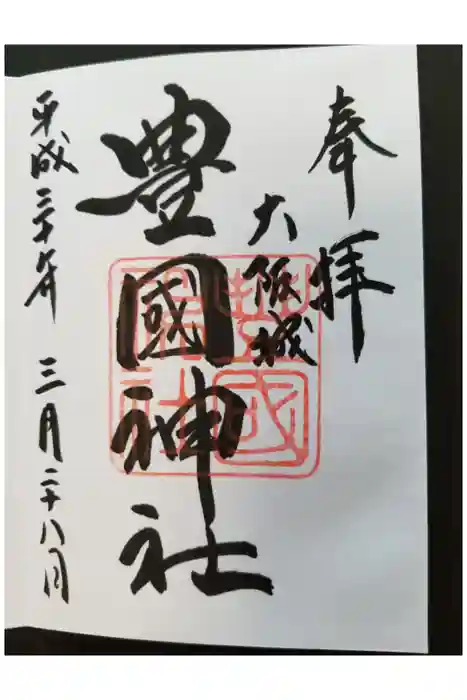 奉拝
大阪城
豊國神社
平成三十年 三月二十八日